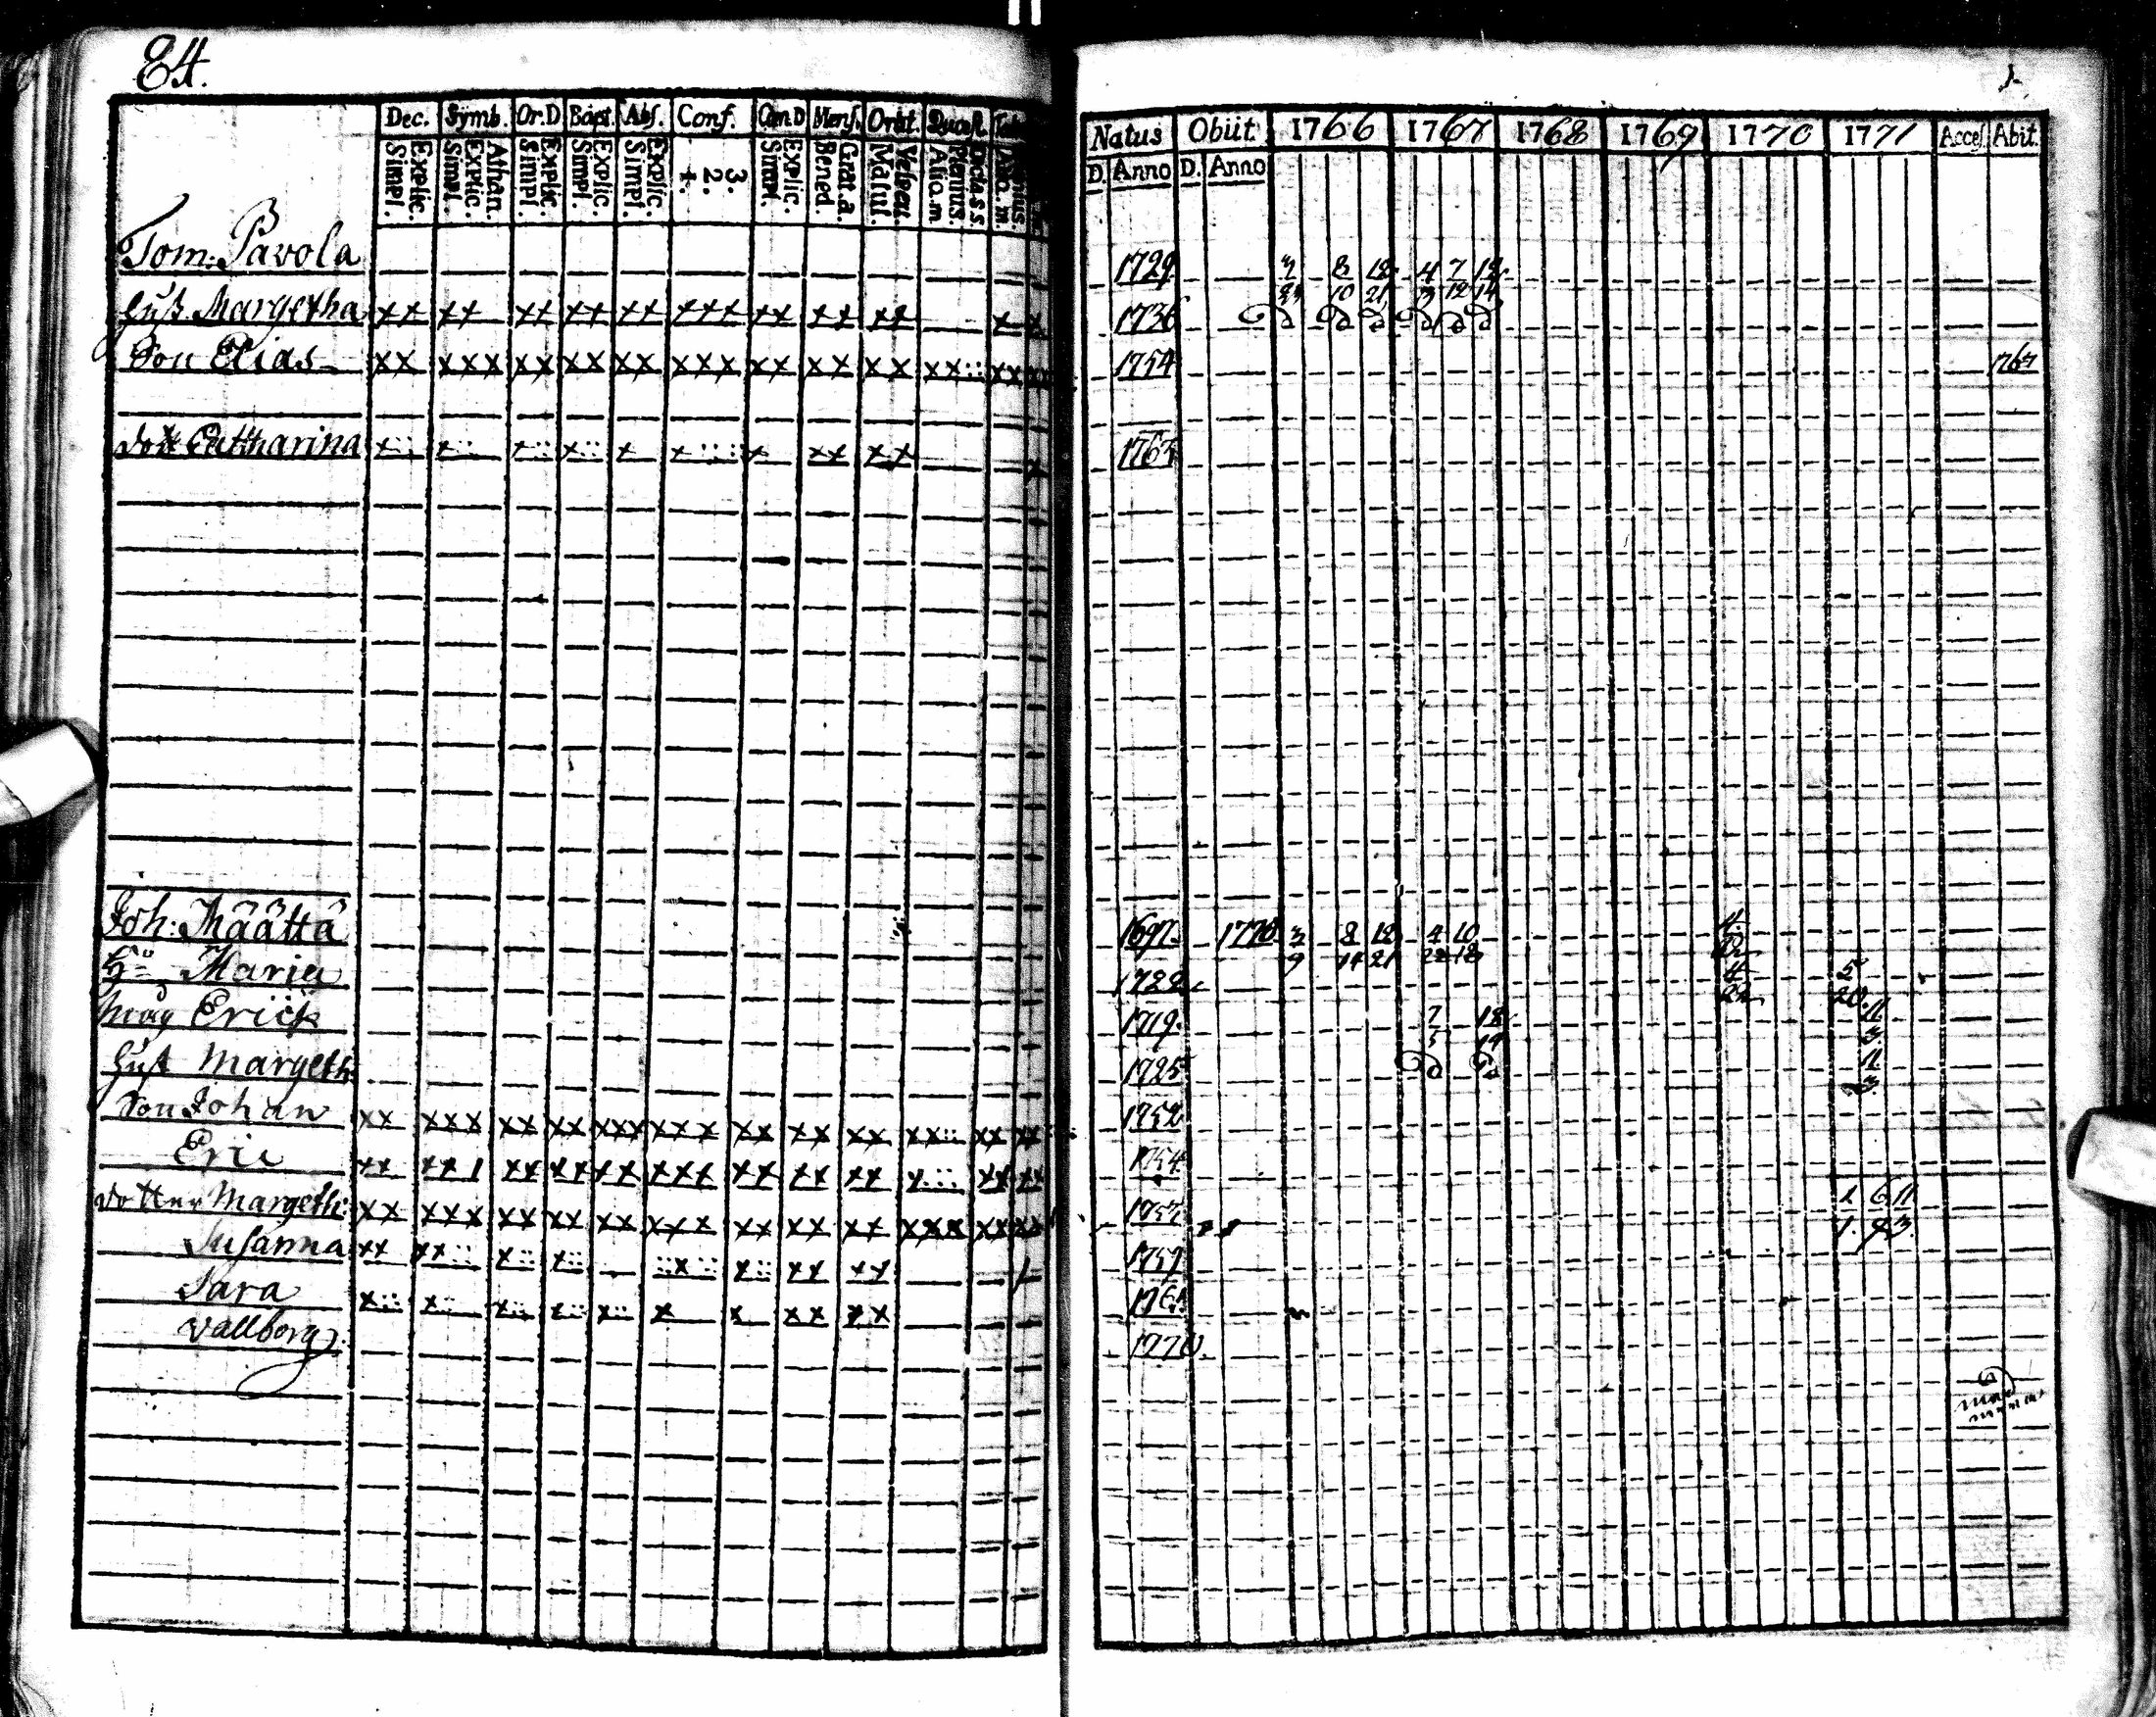 84.
Dec. Symb. Or.D Bapt. Abs. Conf. Cœn.D Mens. Orat. Quæst.
Explic. Simpl. Athan. Explic. Simpl. Explic. Simpl. Explic. Simpl. Explic. Simpl. 3. 2. 1. Explic. Simpl. Grat.a. Bened. Vesper. Matut. Dicta.s.s. Plenius. Aliq.m
Natus Obiit 1766 1767 1768 1769 1770 1771 Acces. Abit.
D. Anno D. Anno
Tom: Pavola 1729 3 8 12 4 7 12
10 21 3 12 14
Hust. Margetha xx xx xx xx xx xxx xx xx xx x x 1736
Son Elias xx xxx xx xx xx xxx xx xx xx xx:: xx xx 1754 1767
dott Catharina x:: x:: x:: x:: x x x xx xx x
Joh: Määttä 1697 1770 3 8 12 4 10 4
9 14 21 22 18
Hu Maria 1722 4 5
22 20
måg Erick 1719 7 12 11
5 14 3
Hust Margeth: 1725 11
3
Son Johan xx xxx xx xx xxx xxx xx xx xx xx:: xx xx 1752
Eric xx xx1 xx xx xx xxx xx xx xx x::: xx xx 1754
dotter Margeth: xx xxx xx xx xx xxx xx xx xx xxx xx xx 1757 1 6 11
1. 9 3.
Susanna xx xx:: x:: x:: ::x:: x:: xx xx 1759
Sara x:: x:: x:: x:: x:: x x xx xx
Vallborg: 1770.